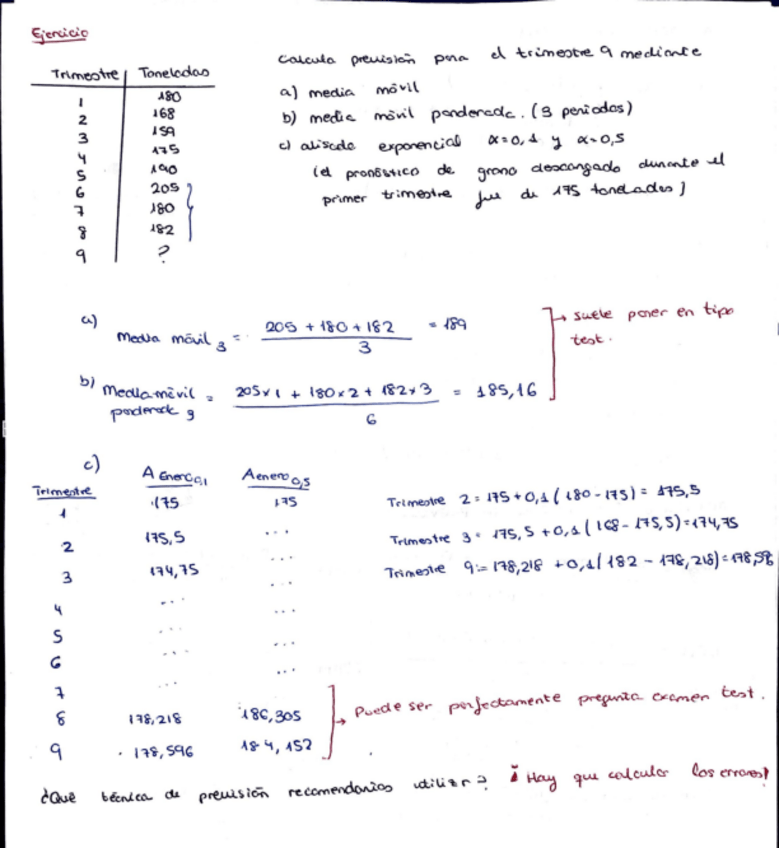 Ejercicio
Trimestre Toneladas
1 180
2 168
3 159
4 175
5 190
6 205
7 180
8 182
9 ?
Calcula previsión para el trimestre 9 mediante
a) media móvil
b) media móvil ponderada. (3 periodos)
c) alisado exponencial α=0,1 y α=0,5
(el pronóstico de grano descargado durante el
primer trimestre fue de 175 toneladas)
a) Media móvil 3 = 205 + 180 + 182 / 3 = 189
b) Media móvil ponderada 9 = 205x1 + 180x2 + 182x3 / 6 = 185,16
→ suele poner en tipo
test.
c)
Trimestre A Enero 0,1 Aenero 0,5
1 175 175
2 175,5 ...
3 174,75 ...
4 ... ...
5 ... ...
6 ... ...
7 ... ...
8 178,218 186,305
9 178,596 184,152
Trimestre 2 = 175 + 0,1 (180 - 175) = 175,5
Trimestre 3 = 175,5 + 0,1 (168 - 175,5) = 174,75
Trimestre 9 = 178,218 + 0,1 (182 - 178,218) = 178,58
→ Puede ser perfectamente pregunta examen test.
¿Qué técnica de previsión recomendarías utilizar? ¡Hay que calcular los errores!